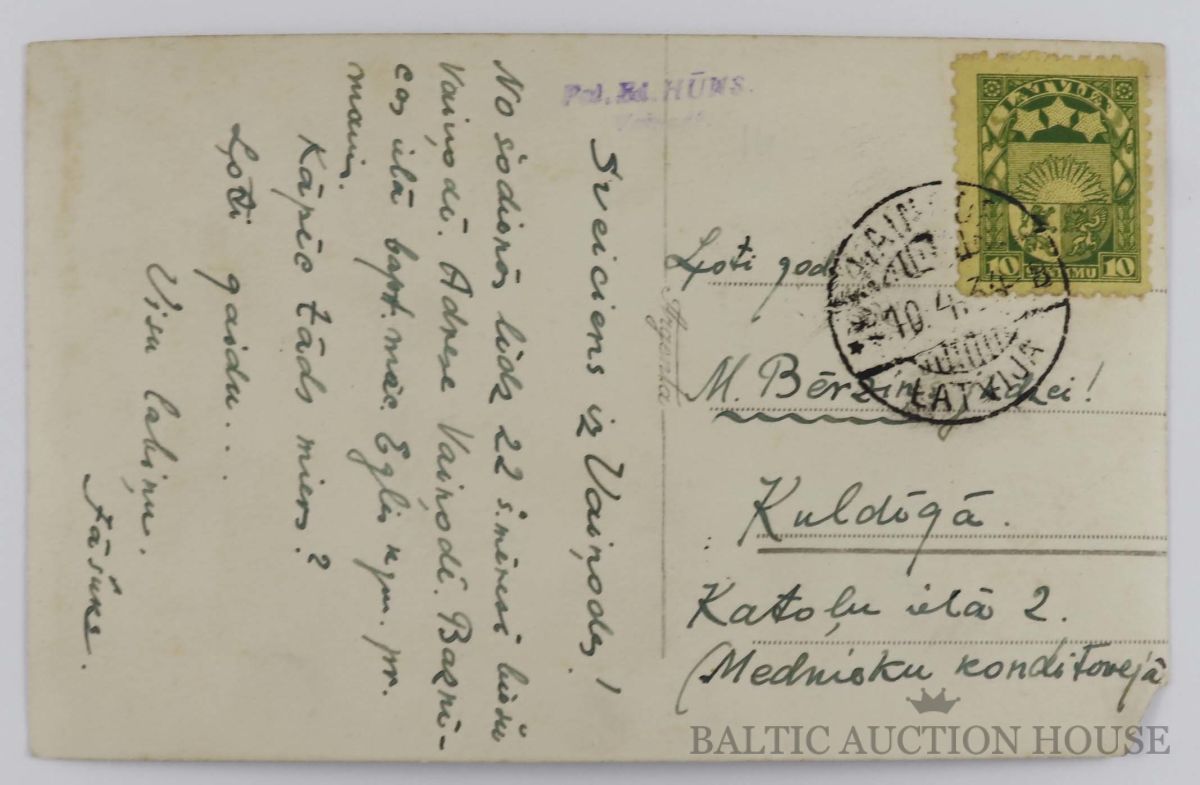 Fot. Ed. HŪNS.
Sveiciens iz Vaiņodes!
No šodienas līdz 22 š. mēnesī būšu
Vaiņodē. Adrese Vaiņodē. Baznī-
cas ielā bapt. māc. Eglis kgm. pr.
manis.
Kāpēc tāds miers?
Ļoti gaidu...
Visu labiņu.
LATVIJA
10 SANTIMU 10
10. 4. 34
LATVIJA
Ļoti god.
M. Bērziņ kdzei!
Kuldīgā.
Katoļu ielā 2.
(Mednieku konditorejā
BALTIC AUCTION HOUSE